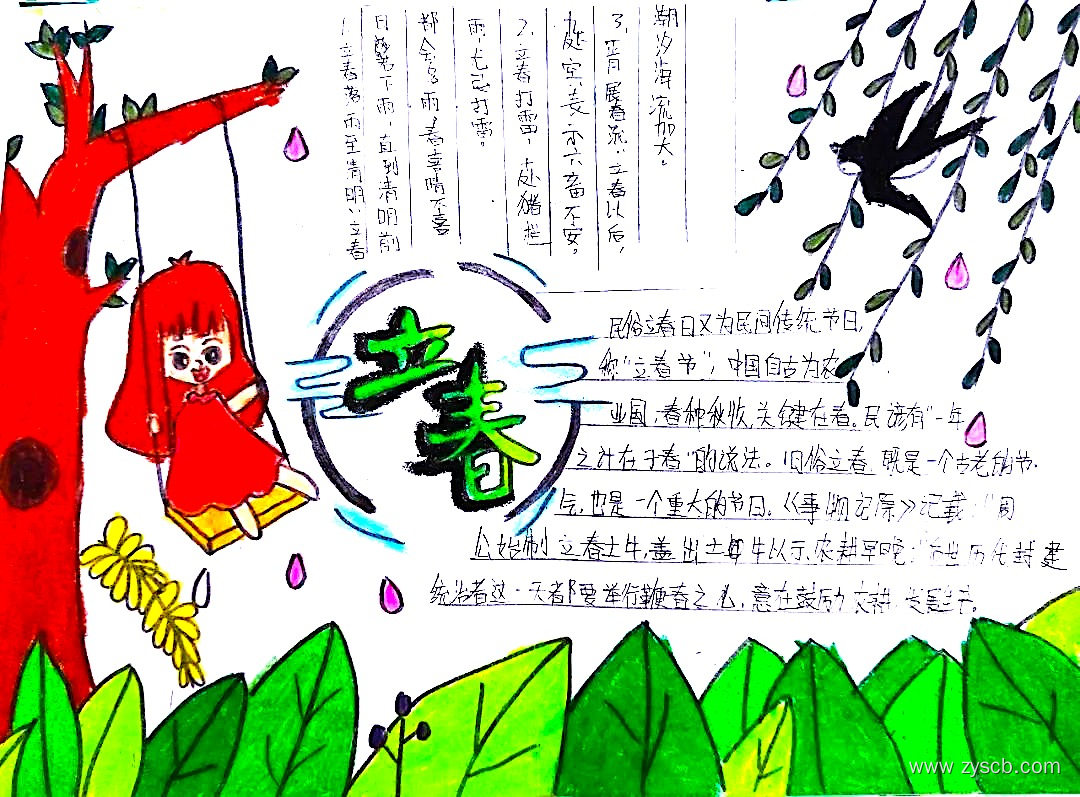 1.立春落雨至清明:立春
日落下雨,直到清明前
都会多雨,春喜晴不喜
雨尤忌打雷。
2.立春打雷,十处猪栏
处空表示六畜不安。
3. 春流:立春以后,
潮汐海流加大。
立春
民俗立春日又为民间传统节日,
称“立春节”;中国自古为农
业国,春种秋收,关键在春。民谚有“一年
之计在于春”的说法。旧俗立春,既是一个古老的节
气,也是一个重大的节日。《事物记原》记载:“周
公始制立春土牛,盖出土牛以示农耕早晚;”后世历代封建
统治者这一天都要举行鞭春之礼,意在鼓励农耕,发展生产。
www.zyscb.com